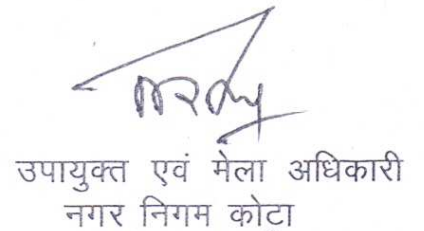 उपायुक्त एवं मेला अधिकारी
नगर निगम कोटा